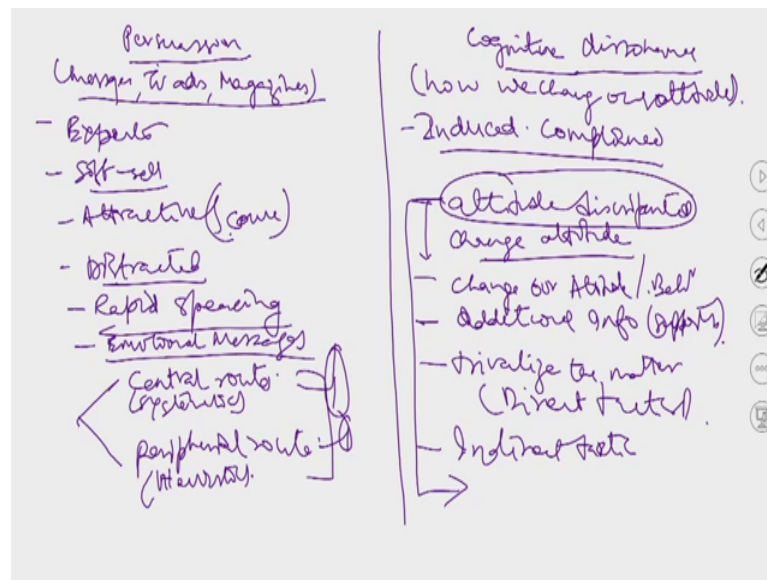 Persuasion
(Messages, TV ads, Magazines)
- Experts
- Soft-sell
- Attractive (Source)
- Distracted
- Rapid Speaking
- Emotional Messages
Central route
(Systematic)
peripheral route
(Heuristic)
Cognitive dissonance
(how we change our attitude).
- Induced. Compliance
attitude discrepant
Change attitude
- Change our Attitude / Beh
- additional Info (Support)
- trivalize the matter
(Direct tactics)
- Indirect tactic